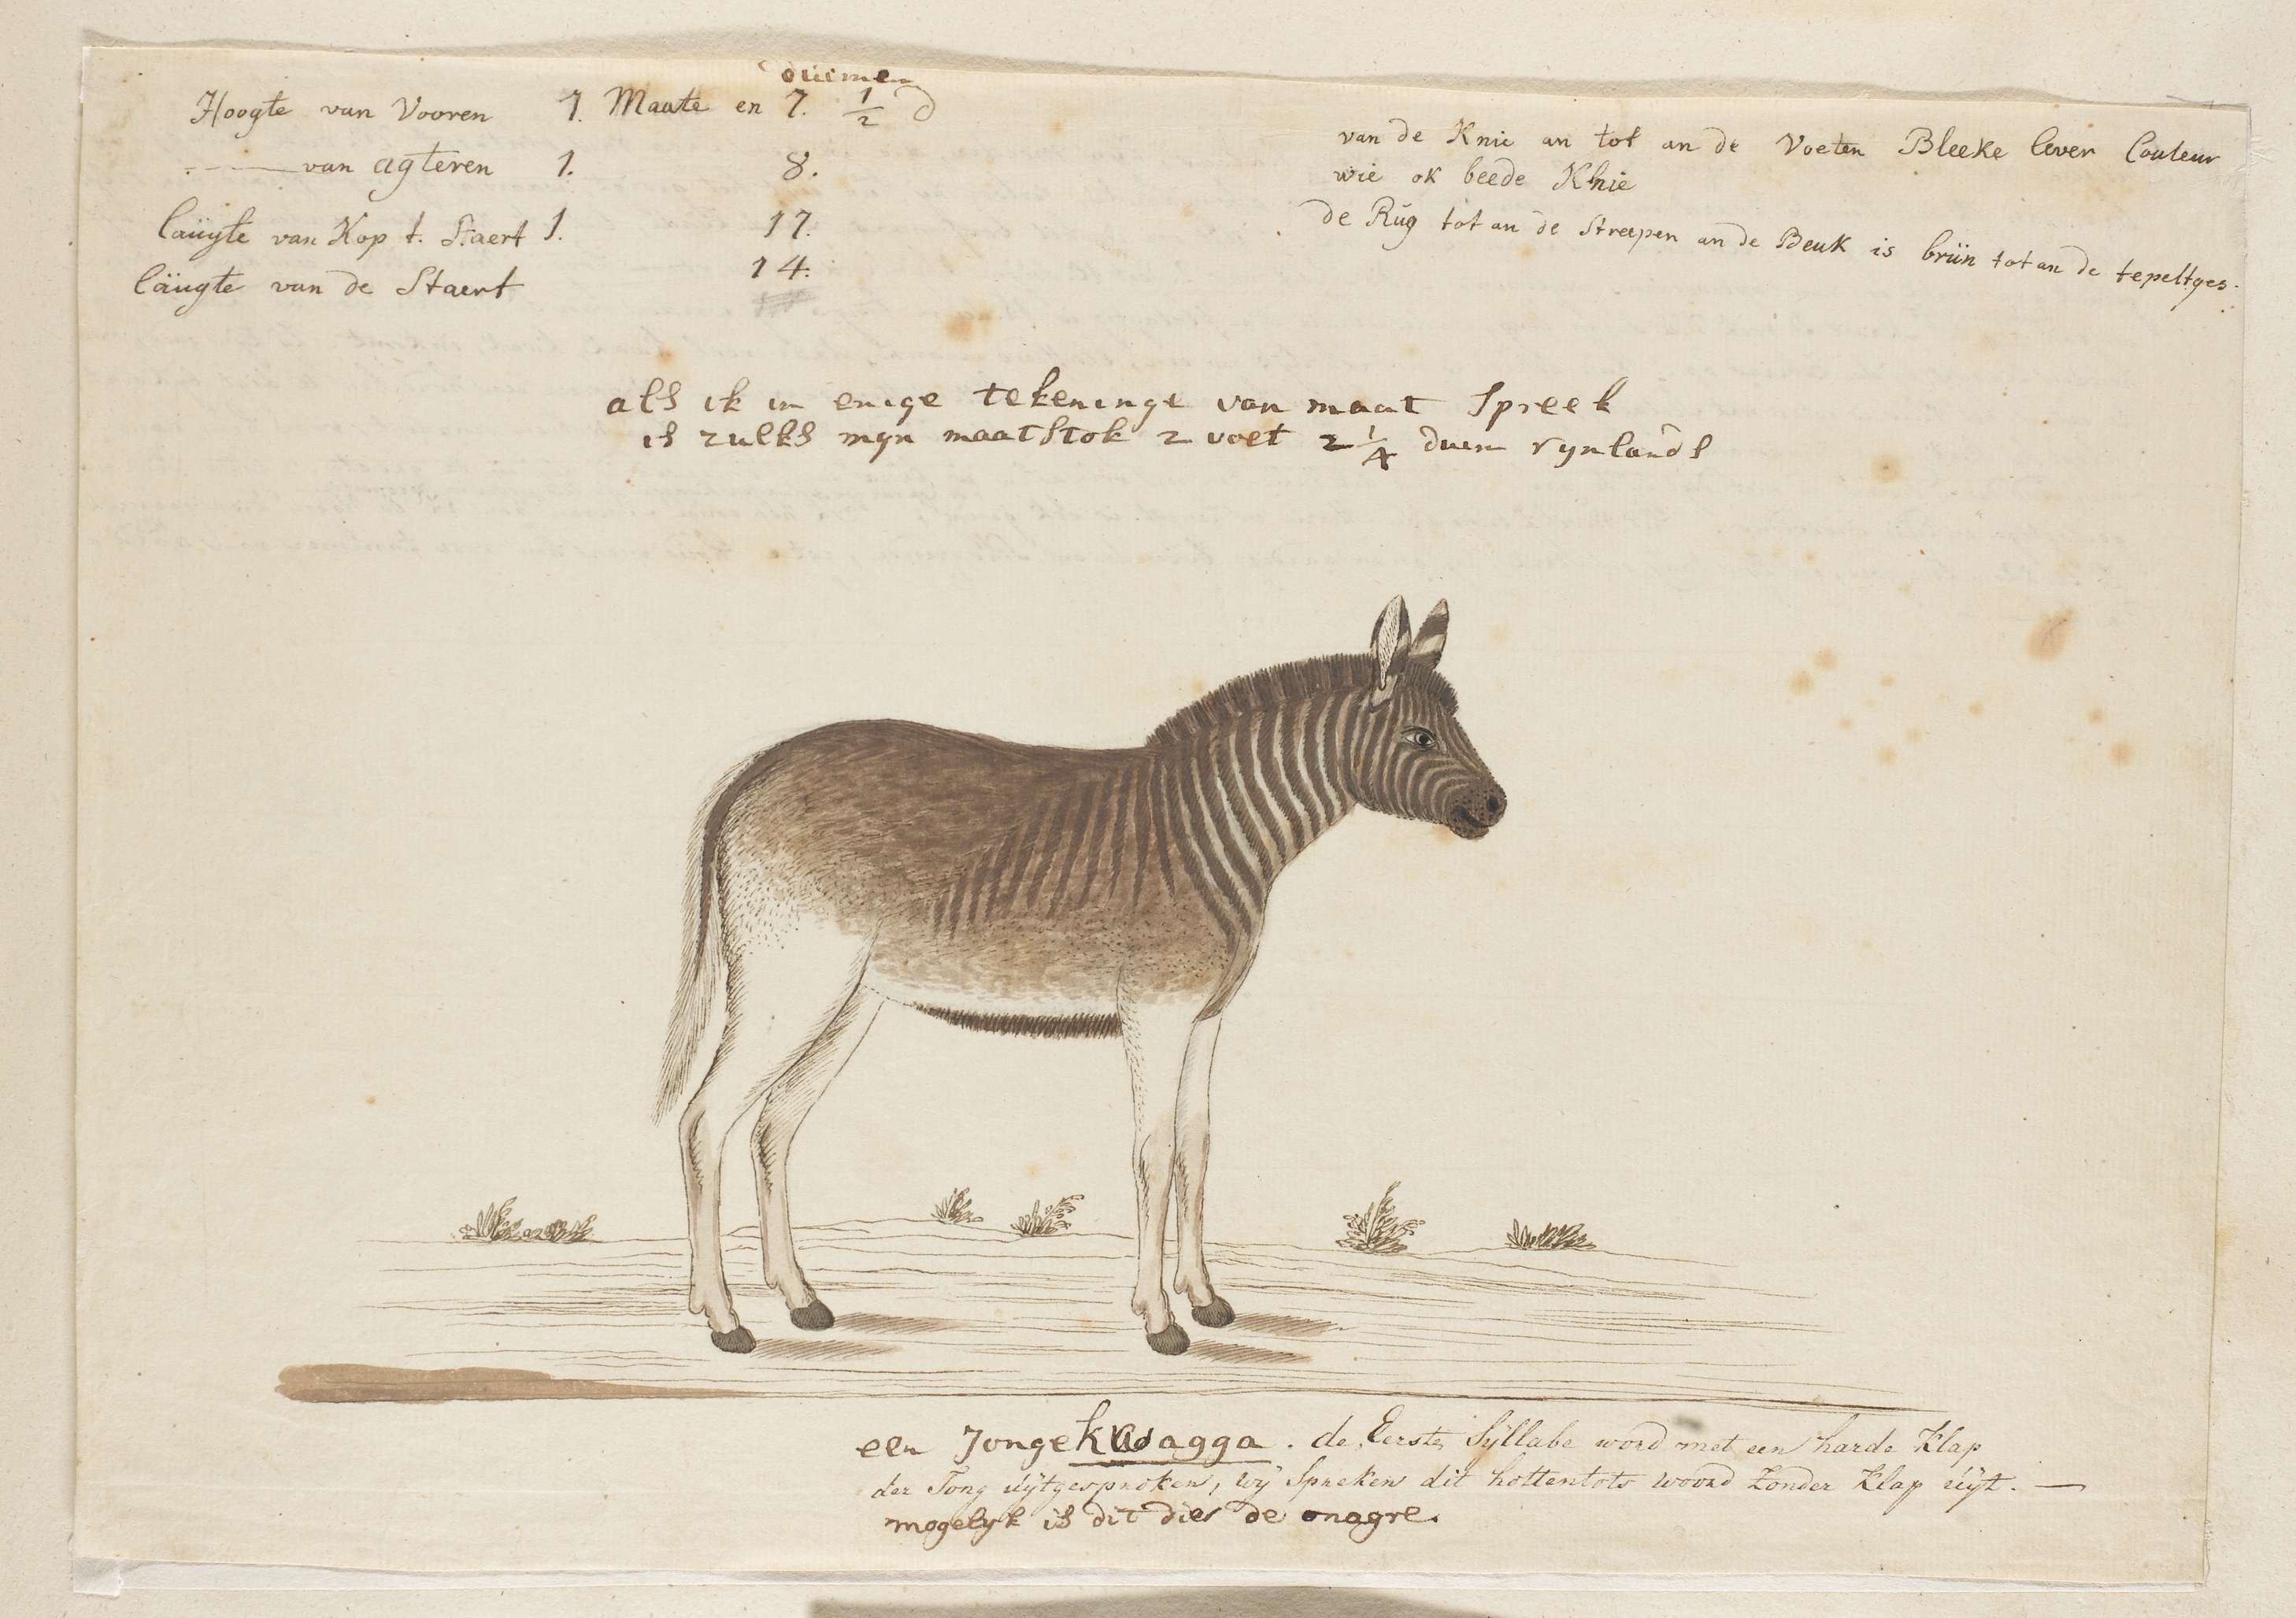 duimen
Hoogte van Vooren 1. Maate en 7. 1/2 d
—— van agteren 1. 8.
läugte van Kop t. Staert 1. 17.
läugte van de Staert 14.
van de Knie an tot an de Voeten Bleeke lever Couleur
wie ok beede Knie
de Rüg tot an de Streepen an de Beuk is brün tot an de tepeltges.
als ik in enige tekeninge van maat Spreek
is zulks myn maatstok 2 voet 2 1/4 duim rynlands
een Jonge kwagga. de Eerste Syllabe word met een harde Klap
der Tong uÿtgesproken, wÿ Spreken dit hottentots woord zonder Klap uÿt. —
mogelyk is dit dier de onagre.